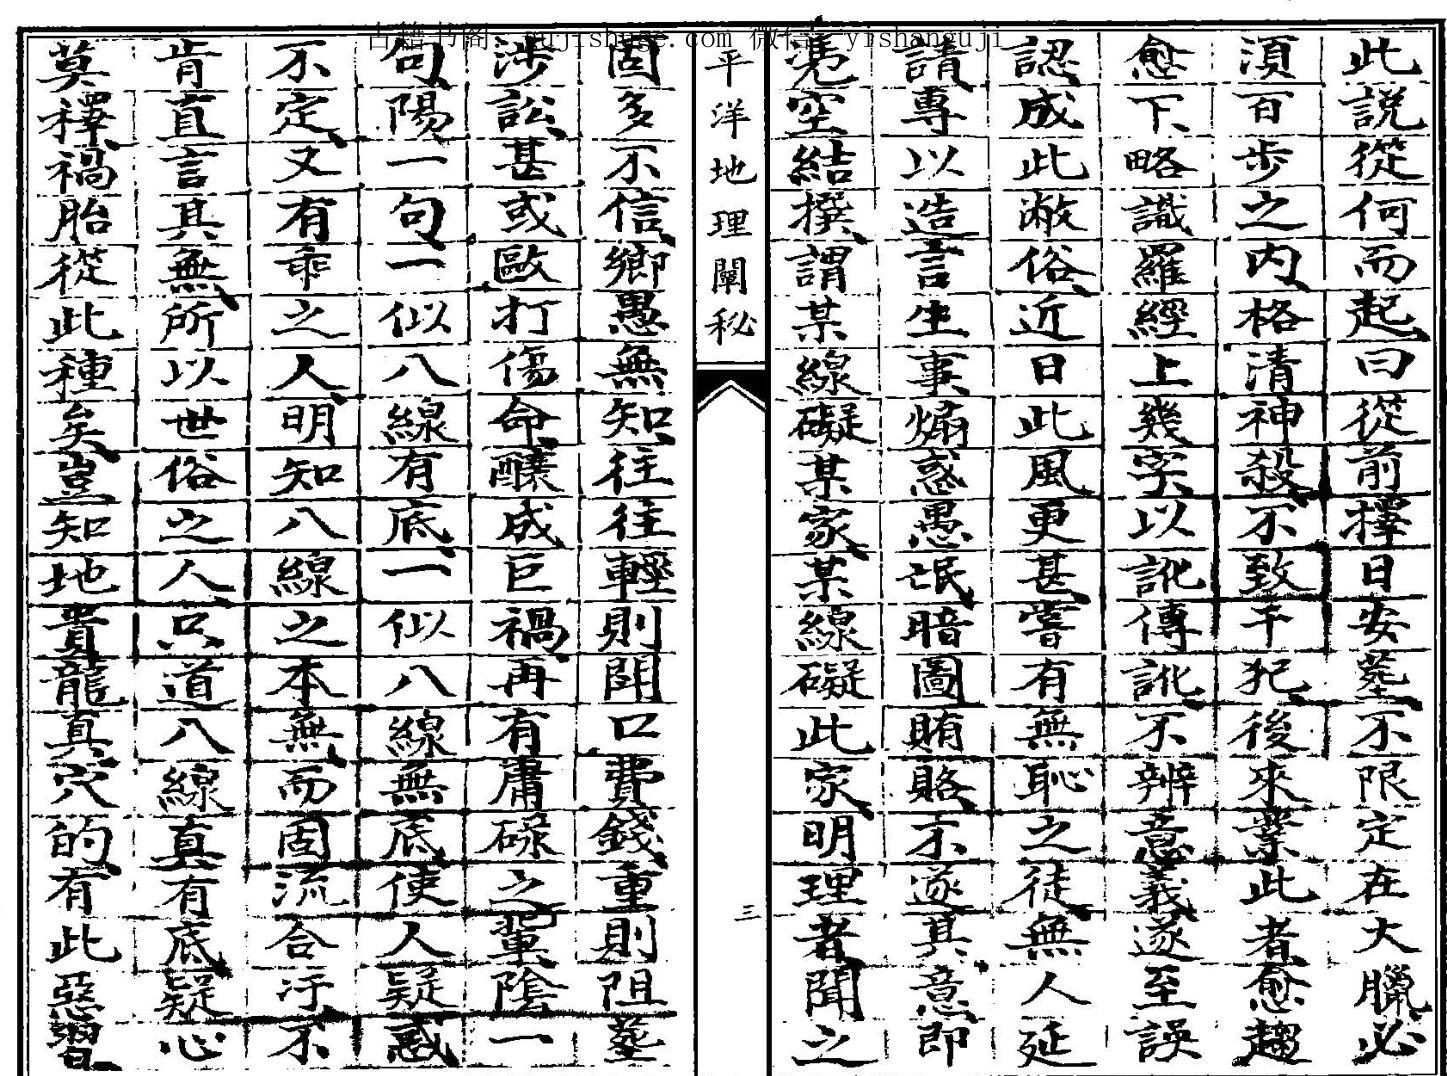 古籍书阁 gujishuge.com 微信 yishanguji
此說從何而起曰從前擇日安塟不限定在大臘必
須百步之内格清神殺不致干犯後來業此者愈趨
愈下略識羅經上幾字以訛傳訛不辨意義遂至誤
認成此敝俗近日此風更甚嘗有無恥之徒無人延
請專以造言生事煽惑愚氓暗圖賄賂不遂其意即
凴空結撰謂某線礙某家某線礙此家明理者聞之
平洋地理闡秘
三
固多不信鄉愚無知往往輕則鬪口費錢重則阻塟
涉訟甚或歐打傷命釀成巨禍再有庸碌之輩陰一
句陽一句一似八線有底一似八線無底使人疑惑
不定又有乖之人明知八線之本無而固流合汙不
肯直言其無所以世俗之人只道八線真有底疑心
莫釋禍胎從此種矣豈知地貴龍真穴的有此惡習